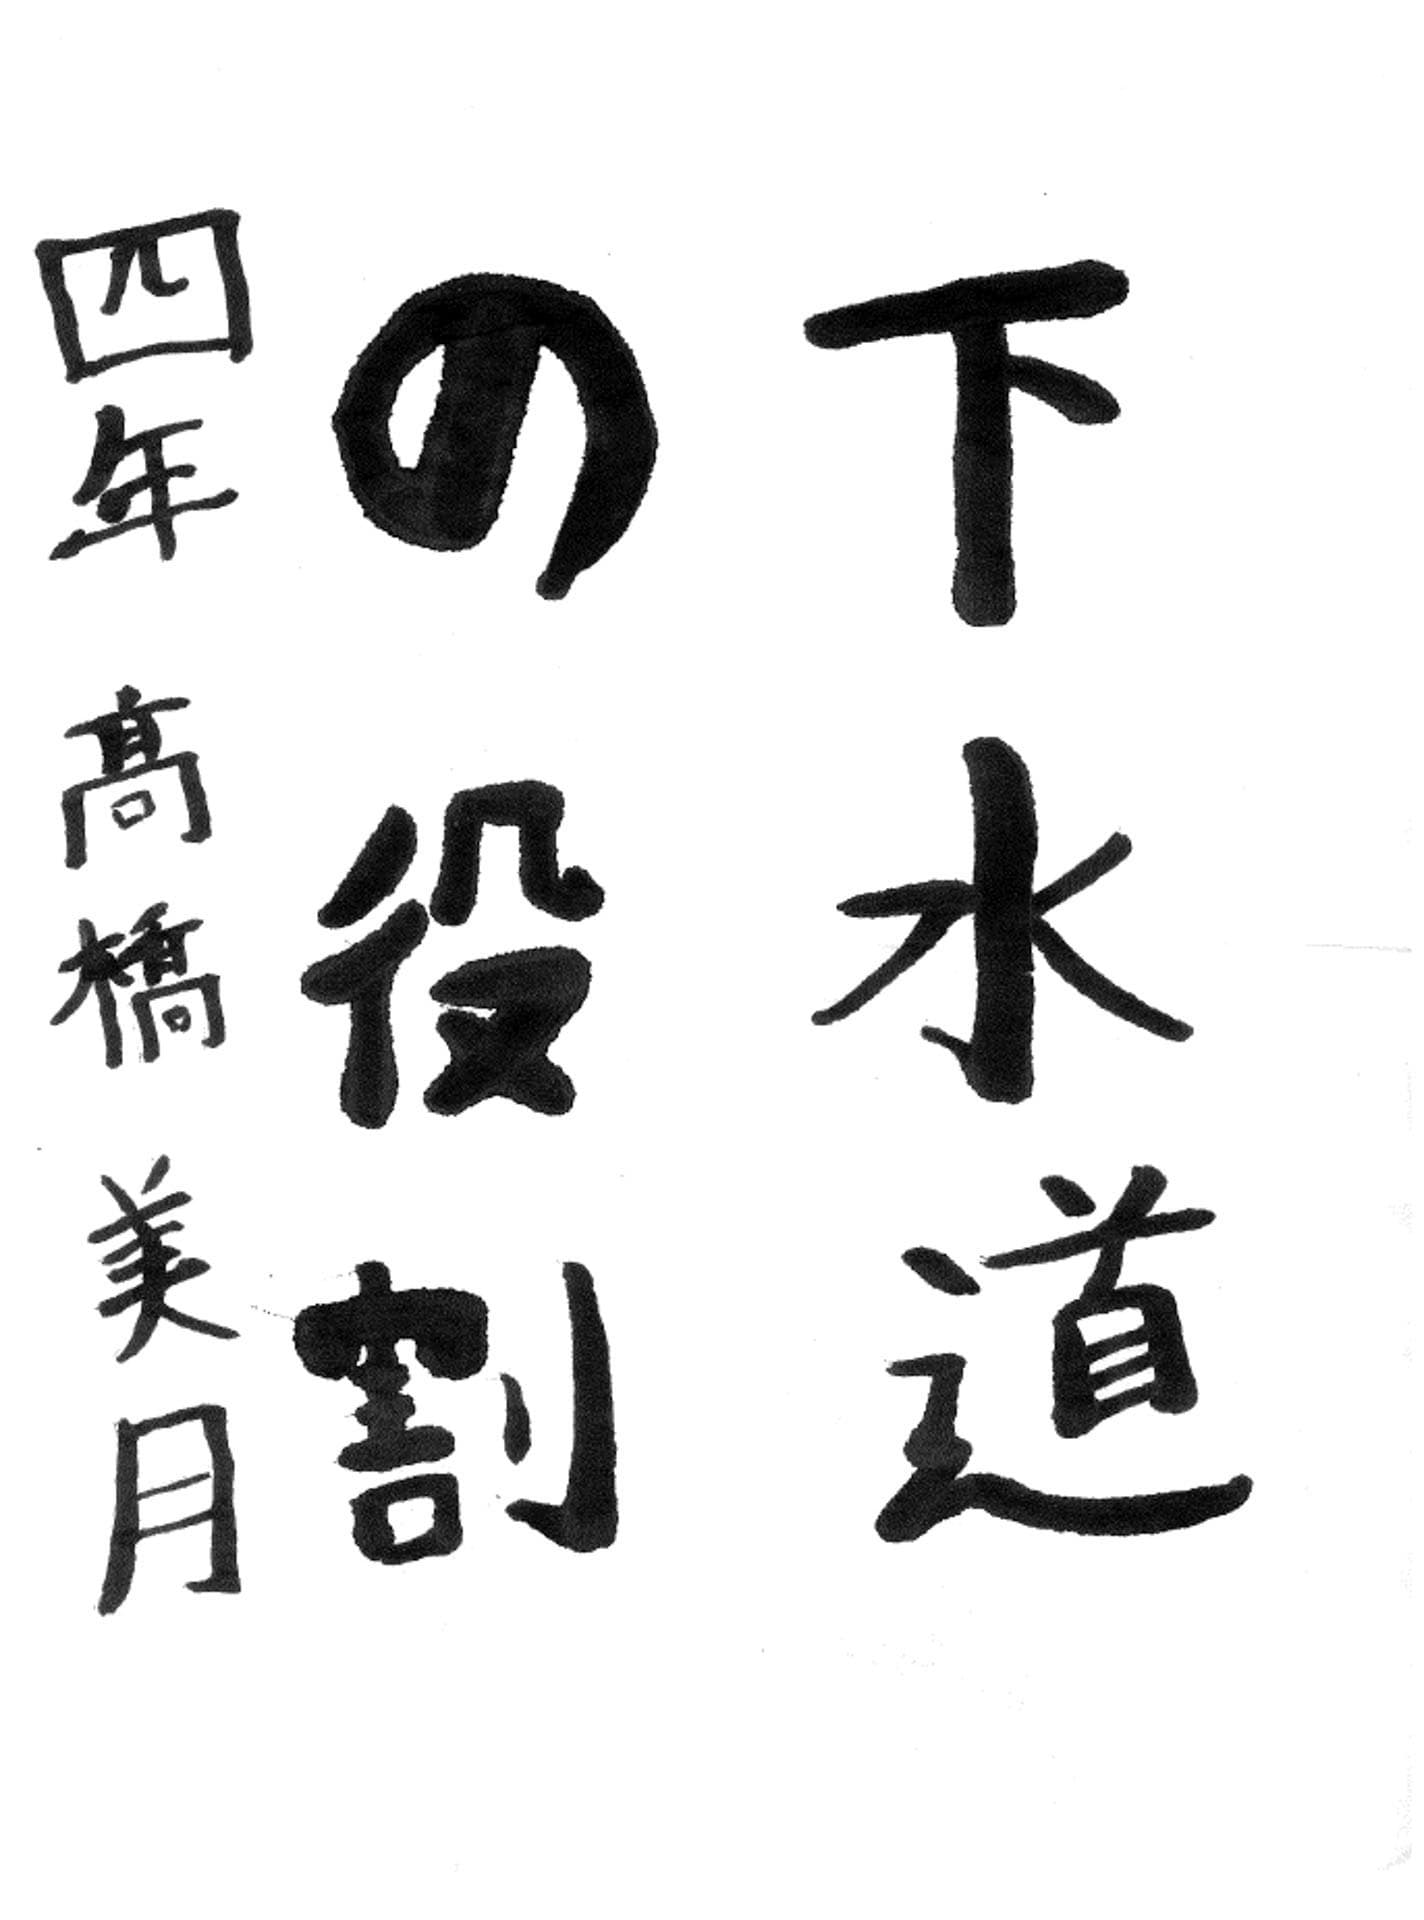 下水道
の役割
四年 髙橋美月